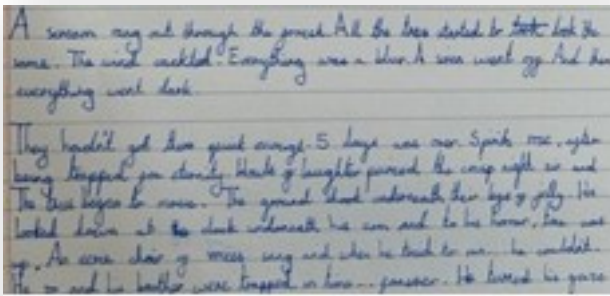 A scream rang out through the forest. All the trees started to look the
same. The wind cackled. Everything was a blur. A siren went off. And then
everything went dark.
They hadn't got there quick enough. 5 days was over. Spirits rose, after
being trapped for eternity. Howls of laughter pierced the crisp night air and
The trees began to move. The ground shook underneath their legs of jelly. He
looked down at the clock underneath his arm and to his horror, time was
up. An eerie choir of voices sang and when he tried to run... he couldn't.
He and his brother were trapped in time... forever. He turned his